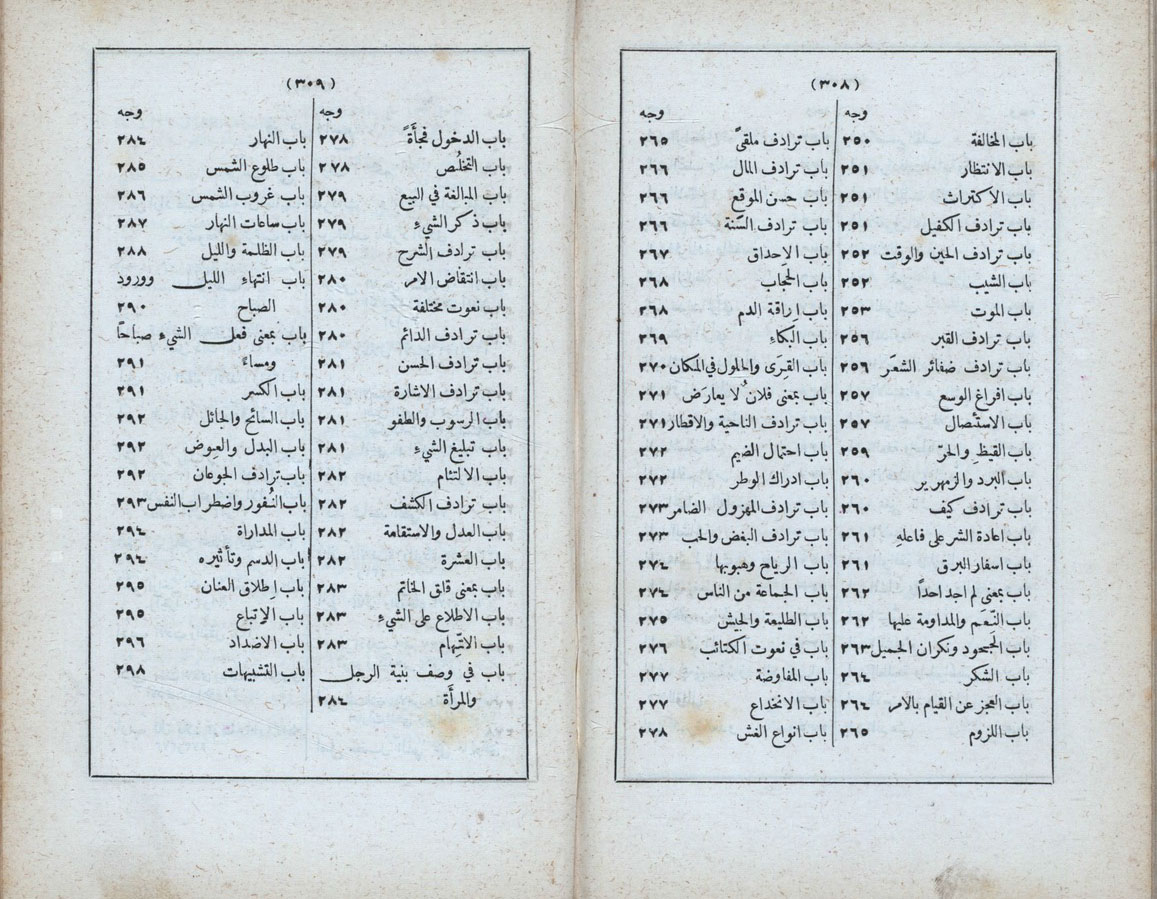 (٣٠٨)
وجه
باب المخالفة ٢٥٠
باب الانتظار ٢٥١
باب الاكتراث ٢٥١
باب ترادف الكفيل ٢٥١
باب ترادف الحين والوقت ٢٥٢
باب الشيب ٢٥٢
باب الموت ٢٥٣
باب ترادف القبر ٢٥٦
باب ترادف ضفائر الشعَر ٢٥٦
باب افراغ الوسع ٢٥٧
باب الاستئصال ٢٥٧
باب القيظ والحرّ ٢٥٩
باب البرد والزمهرير ٢٦٠
باب ترادف كيف ٢٦٠
باب اعادة الشر على فاعلهِ ٢٦١
باب اسفار البرق ٢٦١
باب بمعنى لم اجد احداً ٢٦٢
باب التنعّم والمداومة عليها ٢٦٢
باب الجحود ونكران الجميل ٢٦٣
باب الشكر ٢٦٤
باب العجز عن القيام بالامر ٢٦٤
باب اللزوم ٢٦٥
وجه
باب ترادف ملقىً ٢٦٥
باب ترادف المال ٢٦٦
باب حسن الموقع ٢٦٦
باب ترادف السَّنة ٢٦٦
باب الاحداق ٢٦٧
باب الحِجاب ٢٦٨
باب اراقة الدم ٢٦٨
باب البكاء ٢٦٩
باب القِرَى والحلول في المكان ٢٧٠
باب بمعنى فلانٌ لا يعارَض ٢٧١
باب ترادف الناحية والاقطار ٢٧١
باب احتمال الضيم ٢٧٢
باب ادراك الوطر ٢٧٢
باب ترادف المهزول الضامر ٢٧٣
باب ترادف البغض والحب ٢٧٣
باب الرياح وهبوبها ٢٧٤
باب الجماعة من الناس ٢٧٤
باب الطليعة والجيش ٢٧٥
باب في نعوت الكتائب ٢٧٦
باب المفاوضة ٢٧٧
باب الانخداع ٢٧٧
باب انواع الغش ٢٧٨
(٣٠٩)
وجه
باب الدخول فجأَةً ٢٧٨
باب التخلُّص ٢٧٨
باب المبالغة في البيع ٢٧٩
باب ذكر الشيءِ ٢٧٩
باب ترادف الشرح ٢٧٩
باب انتقاض الامر ٢٨٠
باب نعوت مختلفة ٢٨٠
باب ترادف الدائم ٢٨٠
باب ترادف الحسن ٢٨١
باب ترادف الاشارة ٢٨١
باب الرسوب والطفو ٢٨١
باب تبليغ الشيءِ ٢٨١
باب الالتئام ٢٨٢
باب ترادف الكشف ٢٨٢
باب العدل والاستقامة ٢٨٢
باب العشرة ٢٨٢
باب بمعنى قلق الخاتم ٢٨٣
باب الاطلاع على الشيءِ ٢٨٣
باب الاتّهام ٢٨٣
باب في وصف بنية الرجل
والمرأَة ٢٨٤
وجه
باب النهار ٢٨٤
باب طلوع الشمس ٢٨٥
باب غروب الشمس ٢٨٦
باب ساعات النهار ٢٨٧
باب الظلمة والليل ٢٨٨
باب انتهاء الليل وورود
الصباح ٢٩٠
باب بمعنى فعل الشيءِ صباحًا
ومساءً ٢٩١
باب الكسر ٢٩١
باب السائح والجائل ٢٩٢
باب البدل والعوض ٢٩٢
باب ترادف الجوعان ٢٩٢
باب النُفور واضطراب النفس ٢٩٣
باب المداراة ٢٩٤
باب الدسم وتأثيره ٢٩٤
باب إطلاق العنان ٢٩٥
باب الإتباع ٢٩٥
باب الاضداد ٢٩٦
باب التشبيهات ٢٩٨